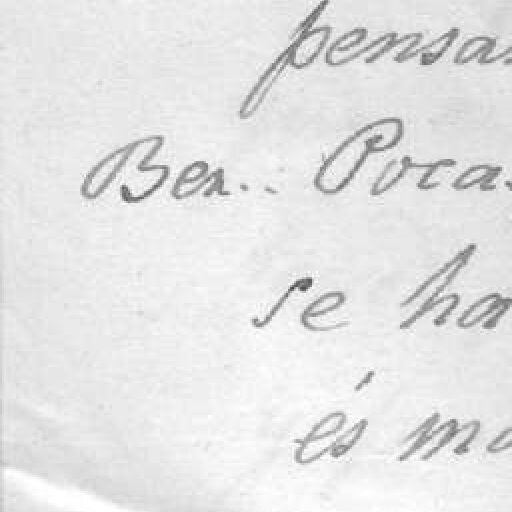 pensar
Ber.. Pocas
se ha
és mo